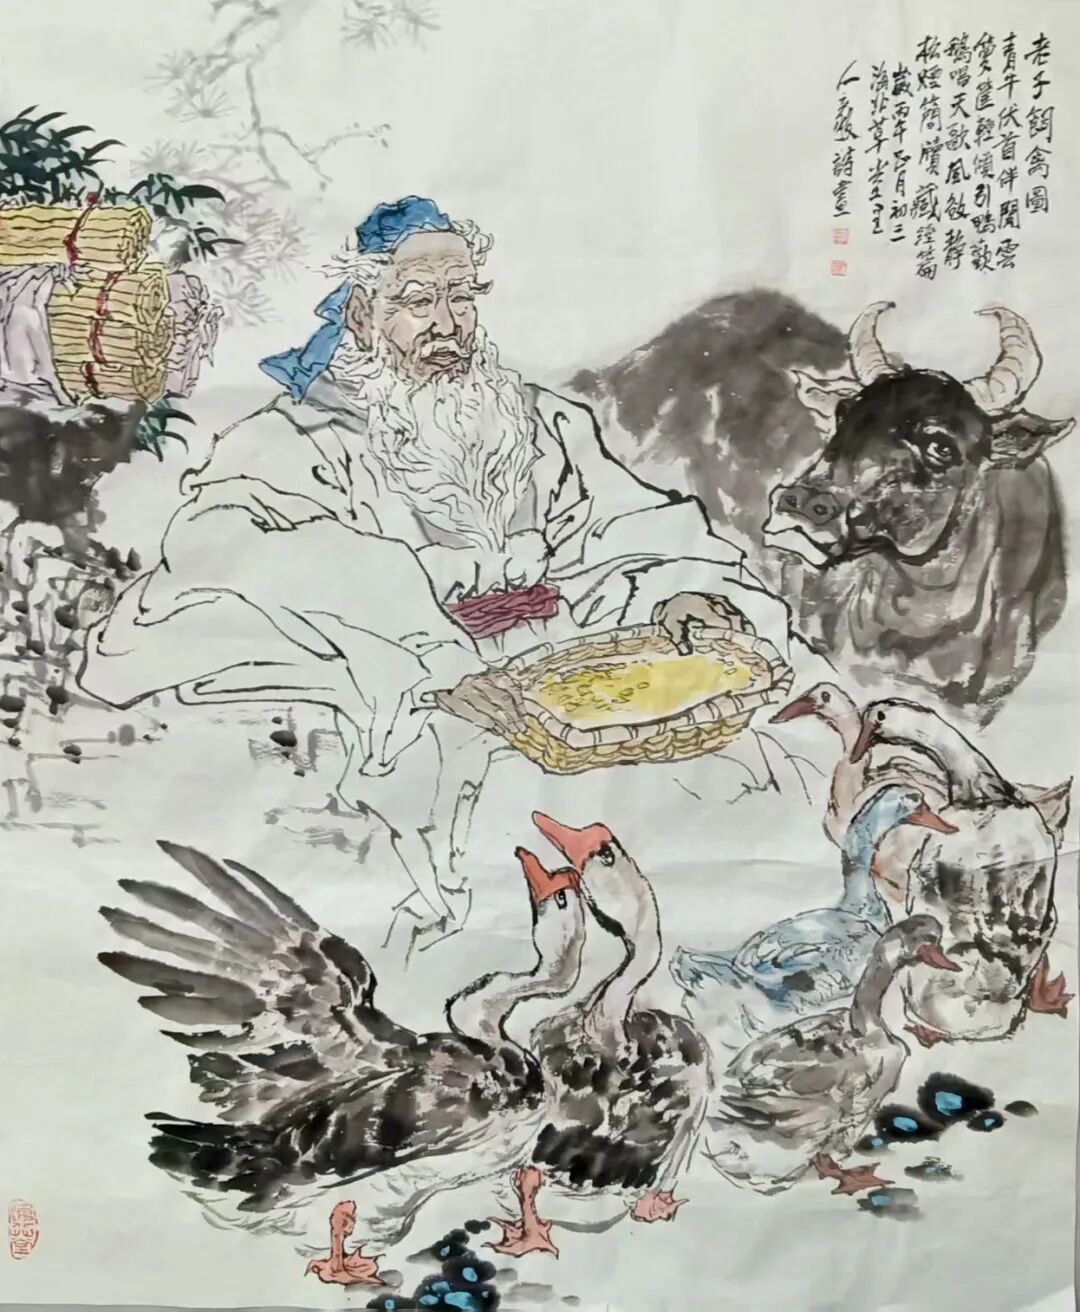 老子飼禽圖
青牛伏首伴閒雲
箕筐輕傾引鴨歡
鵝唱天歌風敛靜
松煙簡牘藏經篇
歲丙午正月初二
海北草堂主
人毅詩畫